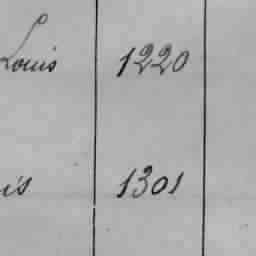 Louis 1220
is 1301